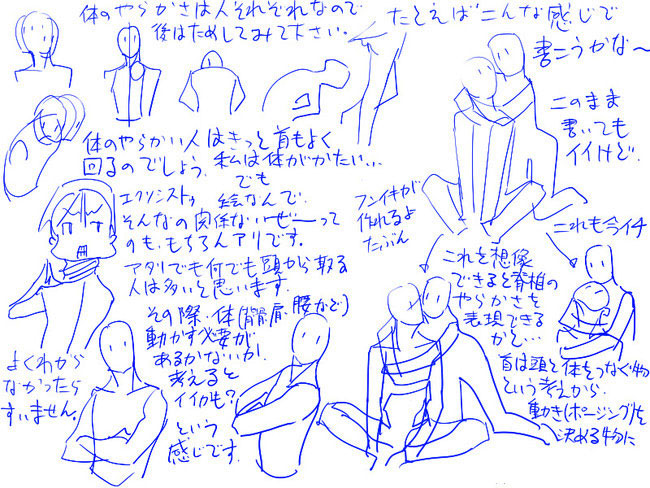 体のやらかさは人それぞれなので
後はためしてみて下さい。
たとえばこんな感じで
書こうかな〜
このまま
書いても
イイけど.
体のやらかい人はきっと首もよく
回るのでしょう. 私は体がかたい...
でも
エクソシスト
絵なんで.
そんなの関係ないぜーって
のも、もちろんアリです。
アタリでも何でも頭から取る
人は多いと思います.
その際、体(
肩、腰など)
動かす必要が
あるかないか.
考えると
イイカも?
という
感じです.
よくわから
なかったら
すいません。
フンイキが
作れるよ
たぶん
これも今イチ
これを想像
できると脊椎の
やらかさを
表現できる
かと...
首は頭と体をつなぐ物
という考えから.
動き(ポージング)を
決める物に